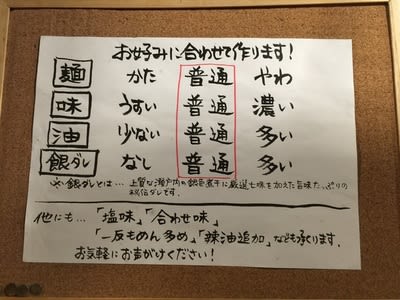 お好みに合わせて作ります!
麺 かた 普通 やわ
味 うすい 普通 濃い
油 少ない 普通 多い
銀ダレ なし 普通 多い
銀ダレとは… 上質な瀬戸内の銀色煮干に厳選七味を加えた旨味たっぷりの
秘伝ダレです。
他にも…「塩味」「合わせ味」
「一反もめん多め」「辣油追加」なども承ります。
お気軽にお声がけください!